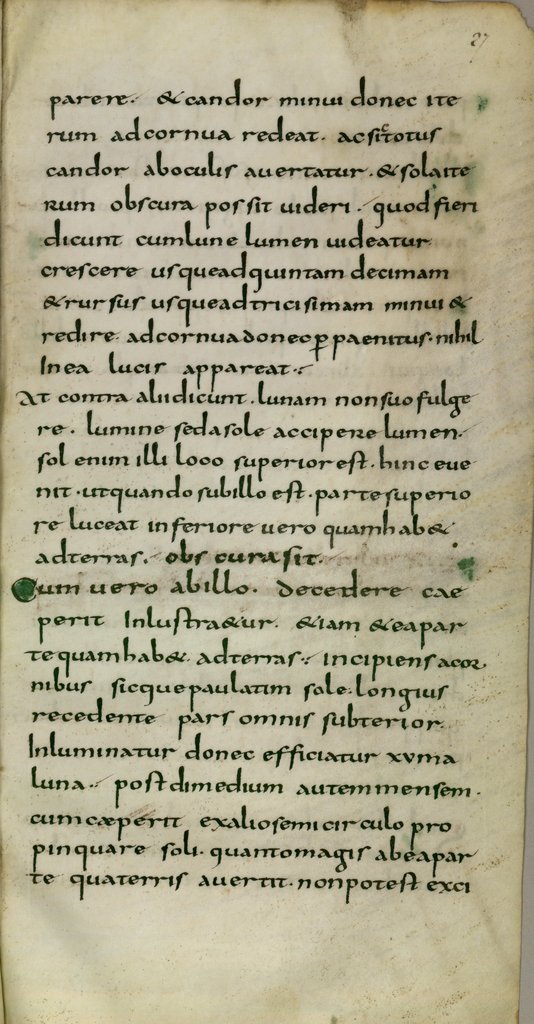 27
parere. & candor minui donec ite
rum ad cornua redeat. ac si totus
candor ab oculis auertatur. & sola ite
rum obscura possit uideri. quod fieri
dicunt cum lune lumen uideatur
crescere usque ad quintam decimam
& rursus usque ad tricisimam minui &
redire ad cornua donec p paenitus. nihil
In ea lucis appareat.
At contra alii dicunt. lunam non suo fulge
re. lumine sed a sole accipere lumen.
sol enim illi loco superior est. hinc eue
nit. ut quando sub illo est. parte superio
re luceat inferiore uero quam hab&
ad terras. obscura sit.
Cum uero ab illo. decedere cae
perit Inlustra&ur. & iam & ea par
te quam hab& ad terras. incipiens a cor
nibus sicque paulatim sole longius
recedente pars omnis subterior.
Inluminatur donec efficiatur xvma
luna. post dimedium autem mensem.
cum cæperit ex alio semicirculo pro
pinquare soli. quanto magis ab ea par
te qua terris auertit. non potest exci